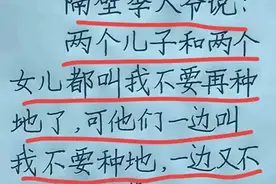 隔壁李大爷说:
两个儿子和两个
女儿都叫我不要再种
地了,可他们一边叫
我不要种地,一边又不